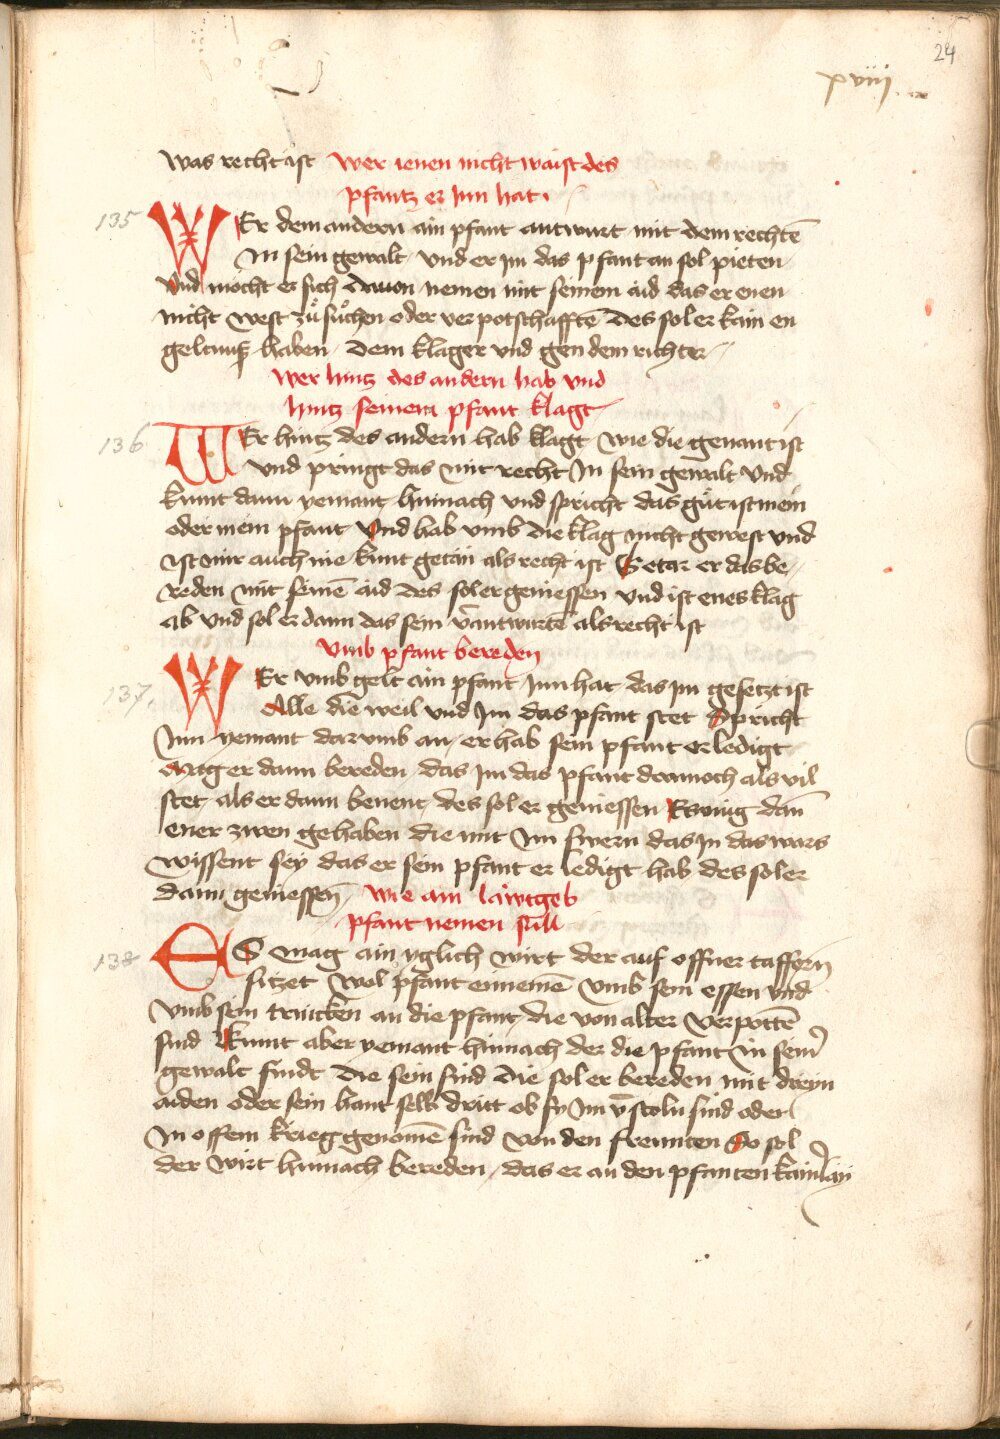 24
xviij
was recht ist wer ienen nicht waist des
pfantz er Inn hat
135
WEr dem andern ain pfant antwurt mit dem rechtē
In sein gewalt Vnd er im das pfant an sol pieten
Vnd möcht er sich dauon nemen mit seinem aid das er enen
nicht west zů sůchen oder verpotschafftē Des sol er kain en
geltnuß haben Dem klager vnd gen dem richter
wer hintz des andern hab vnd
hintz seinem pfant klagt
136
WEr hintz des andern hab klagt wie die genant ist
vnd pringt das mit recht In sein gewalt Vnd
kumt dann yemant hinnach vnd spricht das gůt ist mein
oder mein pfant Vnd hab vmb die klag nicht gewest vnd
ist mir auch nie kunt getan als recht ist Getar er das be
reden mit seinē aid des sol er geniessen vnd ist enes klag
ab vnd sol er dann das sein v̄antwurtē als recht ist
Vmb pfant bereden
137
WEr vmb gelt ain pfant Inn hat das im gesetzt ist
Alle die weil vnd Im das pfant stet Spricht
Inn yemant darumb an er hab sein pfant erledigt
Mag er dann bereden das Im das pfant dannoch als vil
stet als er dann benent des sol er geniessen dañ
ener zwen gehaben die mit Im swern das In das wars
wissent sey das er sein pfant erledigt hab des sol er
dann geniessen wie ain läwtgeb
pfant nemen süll
138
ES mag ain yglich wirt der auf offner taffern
sitzet wol pfant einnemē vmb sein essen vnd
vmb sein trincken an die pfant die von alter verpottē
sind Kumt aber yemant hinnach der die pfant in seinr
gewalt findt die sein sind die sol er bereden mit dreyn
aiden oder sein hant selb dritt ob sy Im v̄stoln sind oder
In offem krieg genomē sind von den freunten So sol
der wirt hinnach bereden das er an den pfanten kainrlay